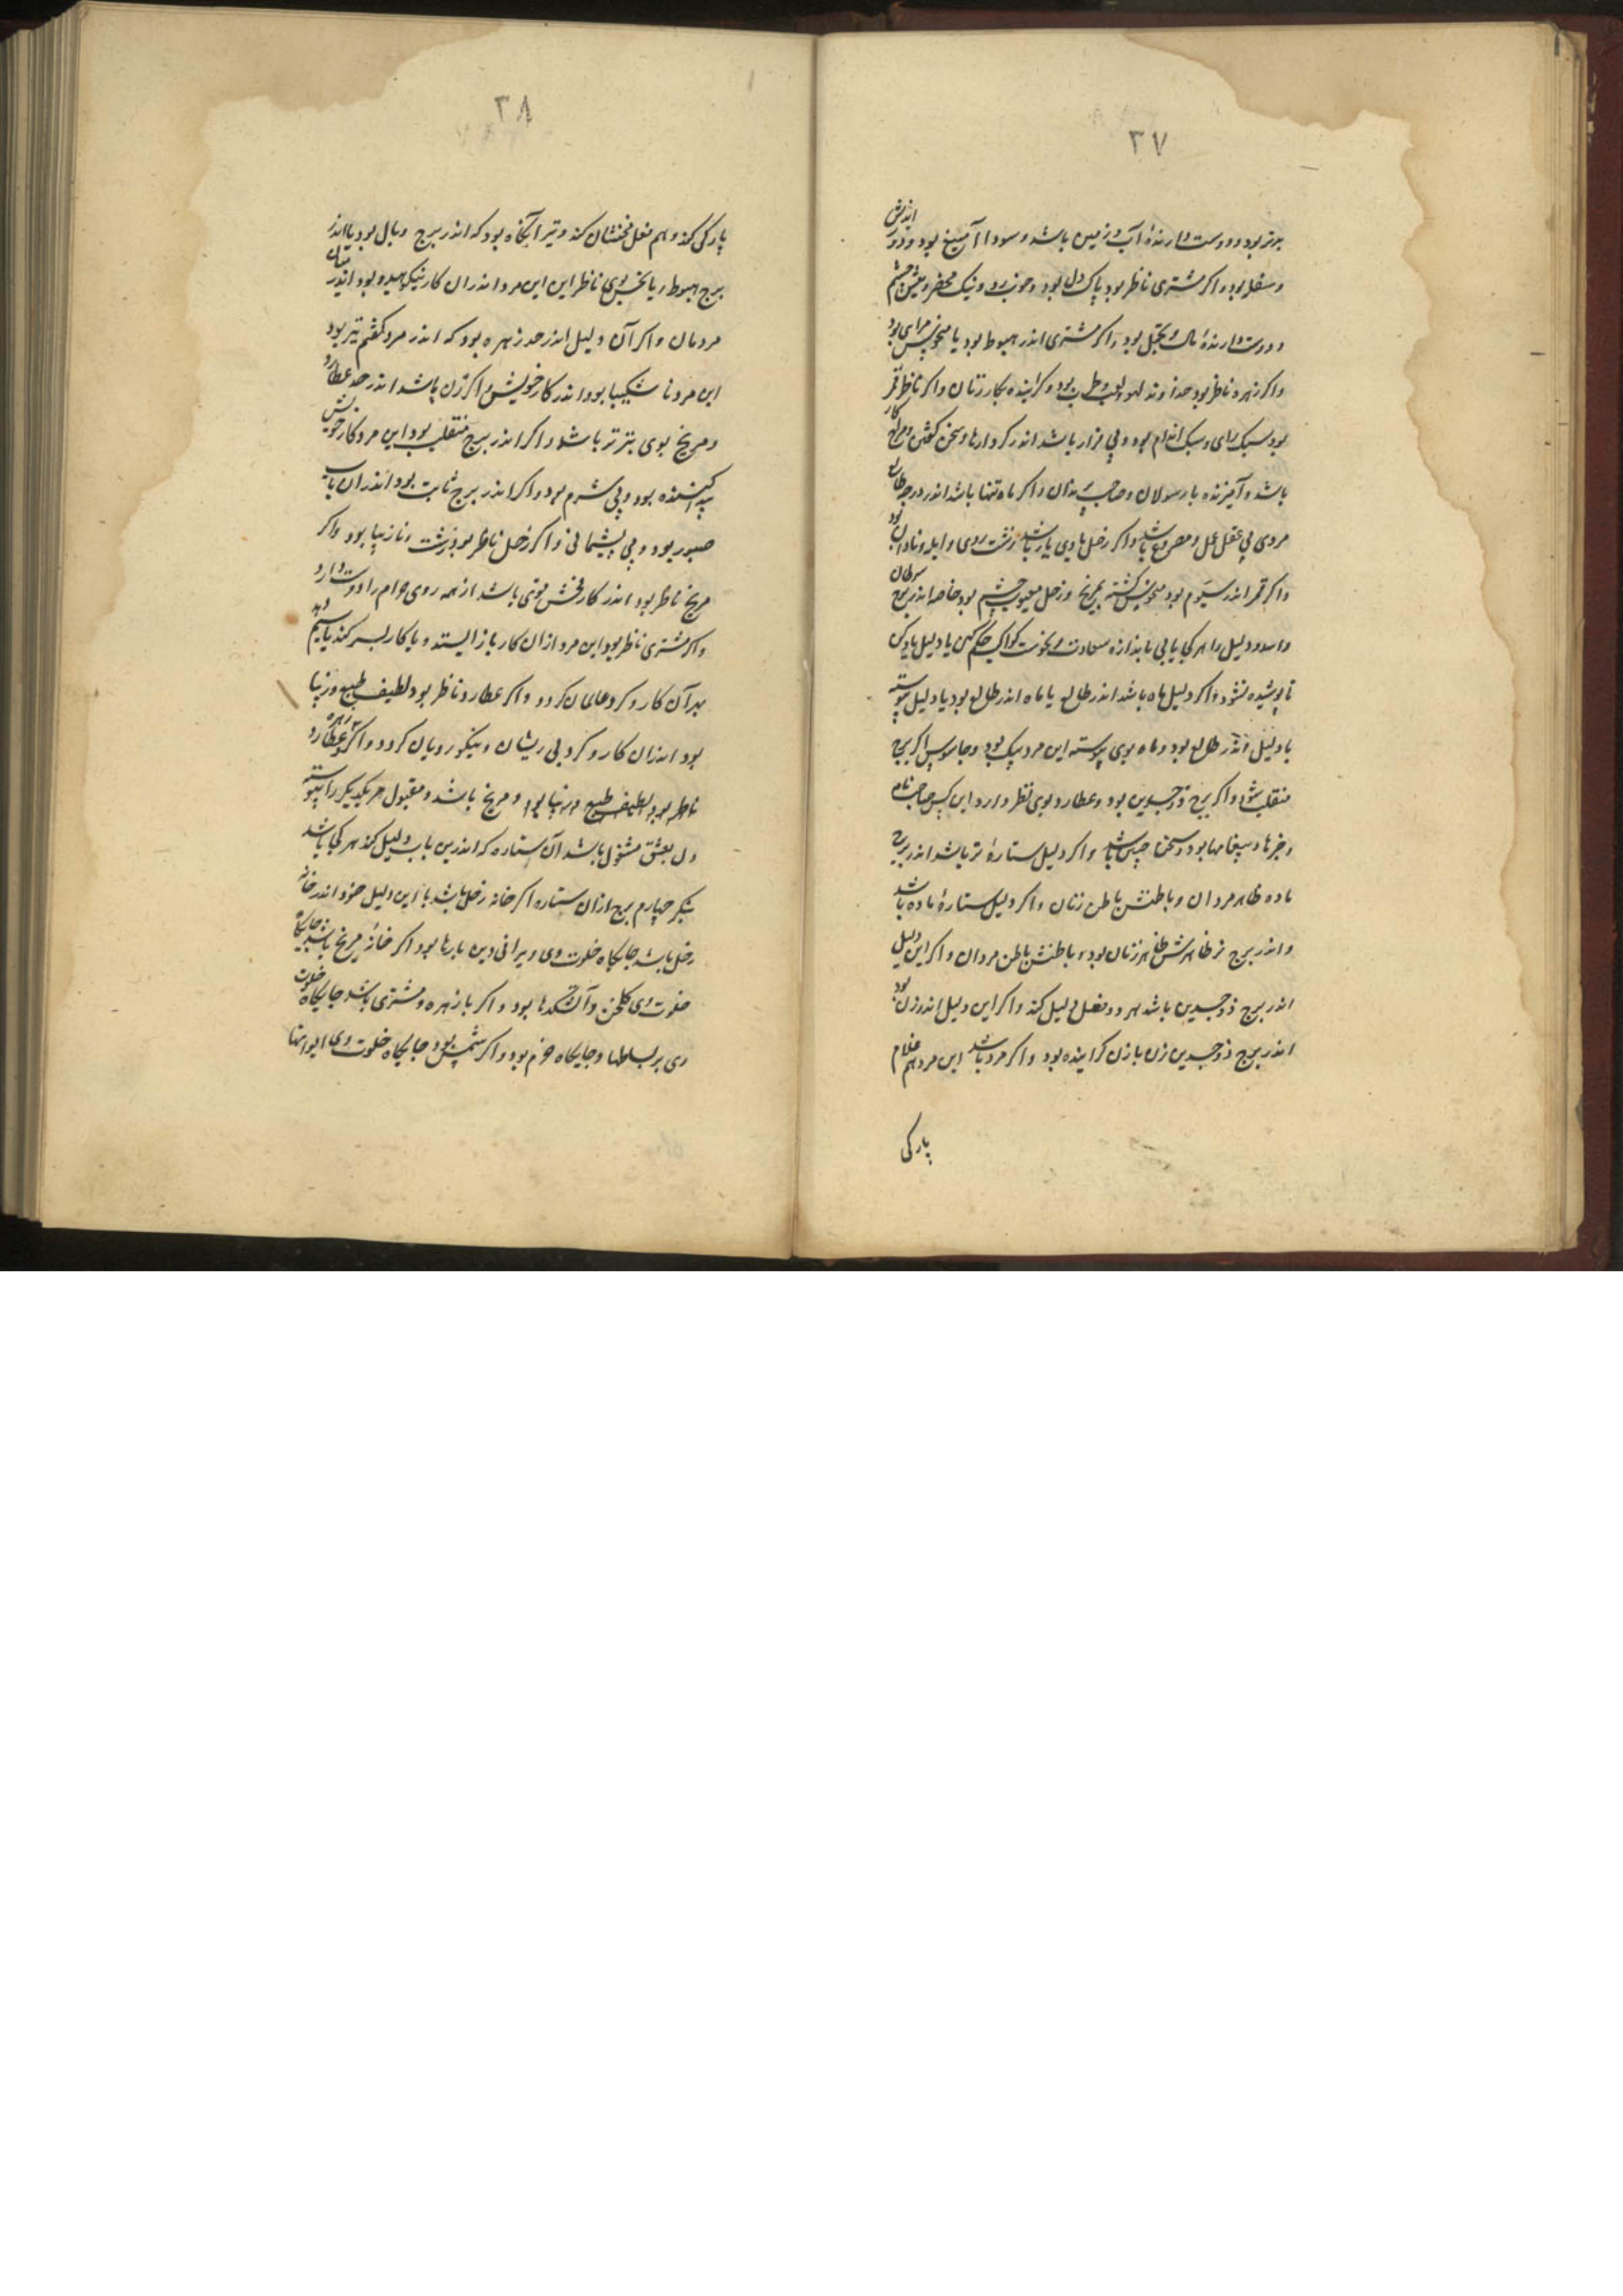 ۳۷
برتر بود و دوست دارندهٔ آب و زمین باشد و سودا آمیغ بود و دور اندیش
و سفله بود و اکر مشتری ناظر بود پاک دل بود و خوب روی و نیک محضر و میش چشم
و دوست دارندهٔ مال و تجمل بود و اکر مشتری اندر هبوط بود یا منحوس مرای بود
و اکر زهره ناظر بود خداوند لهو و لعب و طرب بود و کراینده بکار زنان و اکر ناظر قمر
بود سبک رای و سبک اندام بود و بی مزار باشد اندر کردارها و سخن کفتن و مردم کار
باشد و آمیزنده با رسولان و صاحب و اکر ماه تنها باشد اندر درجه طالع
مردی بی عقل بی عمل و مصروع باشد و اکر زحل با وی یار باشد زشت روی و ابله و نادان بود
و اکر قمر اندر سیوم بود منحوس کشته بمریخ و زحل معیوب چشم بود خاصه اندر برج سرطان
و اسد و دلیل را هر کجا یابی باندازه سعادت و نحوست کواکب حکم کن با دلیل یاد کن
تا پوشیده نشود و اکر دلیل ماه باشد اندر طالع یا ماه اندر طالع بود یا دلیل پیوسته
یا دلیل اندر طالع بود و ماه بوی پیوسته این مرد پیک بود و جاسوس اکر برج
منقلب بود و اکر برج ذو جسدین بود و عطارد بوی نظر دارد این کس صاحب نامه
و خبرها و پیغامها بود و سخنها باشد و اکر دلیل ستارهٔ نر باشد اندر برج
ماده ظاهر مردان و باطنش باطن زنان و اکر دلیل ستارهٔ ماده باشد
و اندر برج نر ظاهرش ظاهر زنان بود و باطنش باطن مردان و اکر این دلیل
اندر برج ذو جسدین باشد هر دو فعل دلیل کند و اکر این دلیل اندر زن بود
اندر برج ذو جسدین زن با زن کراینده بود و اکر مرد باشد این مرد هم غلام
پارکی
۳۸
پارکی کند و هم فعل مخنثان کند و تیر آنکاه بود که اندر برج وبال بود یا اندر
برج هبوط و یا نحس بوی ناظر این این مرد اندران کار نیکوهیده بود اندر میان
مردمان و اکر آن دلیل اندر حد زهره بود که اندر مرد کفتم تیر بود
این مرد نا شکیبا بود اندر کار خویش و اکر زن باشد اندر حد عطارد
و مریخ بوی بتر تر باشد و اکر اندر برج منقلب بود این مرد کار خویش
پیدا کننده بود و بی شرم بود و اکر اندر برج ثابت بود اندران باب
صبور بود و بی پشیمانی و اکر زحل ناظر بود زشت و نازیبا بود و اکر
مریخ ناظر بود اندر کار فحش قوی باشد از همه روی حرام را دوست دارد
و اکر مشتری ناظر بود این مرد ازان کار باز ایستد و یا کار بسر کند یا سیم دهد
بهر آن کار و کرد عالمان کردد و اکر عطارد ناظر بود لطیف طبع و زیبا
بود اندران کار و کرد بی ریشان و نیکو رویان کردد و اکر زهره و عطارد
ناظر بود لطیف طبع و زیبا بود و مریخ باشد و مقبول مر یکدیکر را پیوسته
دل بعشق مشغول باشد آن ستاره که اندرین باب دلیل کند هر کجا باشد
بنکر چهارم برج ازان ستاره اکر خانه زحل باشد یا این دلیل خود اندر خانه
زحل باشد جایکاه خلوت وی ویرانی و بن بارها بود و اکر خانهٔ مریخ باشد جایکاه
خلوت وی کلخن و آتشکدها بود و اکر با زهره و مشتری باشد جایکاه خلوت
وی بر بساطها و جایکاه خرم بود و اکر شمس بود جایکاه خلوت وی ایوانها